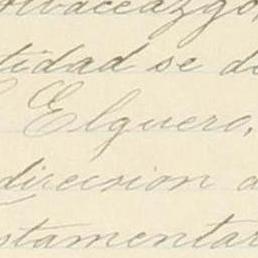 albaceazgo
tidad se d
C Elguero,
direccion d
stamentar